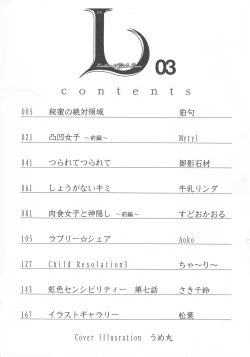 L
03
contents
005 秘蜜の絶対領域 狛句
021 凸凹女子 ～前編～ Mytyl
041 つられてつられて 御影石材
061 しょうがないキミ 牛乳リンダ
081 肉食女子と神隠し ～前編～ すどおかおる
105 ラブリー☆シェア Aoko
127 Child Resolation3 ちゃ～り～
143 虹色センシビリティー 第七話 さき千鈴
167 イラストギャラリー 松葉
Cover Illusration うめ丸